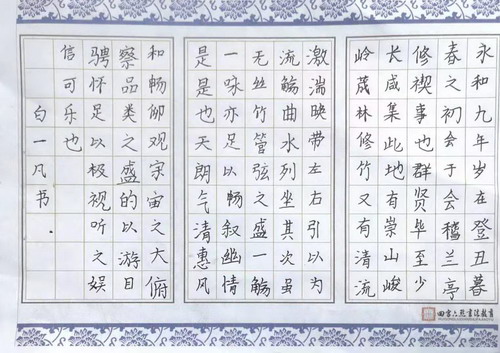 永和九年岁在癸丑暮
春之初会于会稽兰亭
修禊事也群贤毕至少
长咸集此地有崇山峻
岭茂林修竹又有清流
激湍映带左右引以为
流觞曲水列坐其次虽
无丝竹管弦之盛一觞
一咏亦足以畅叙幽情
是是也天朗气清惠风
和畅仰观宇宙之大俯
察品类之盛的以游目
骋怀足以极视听之娱
信可乐也
白一凡书.
书法教育